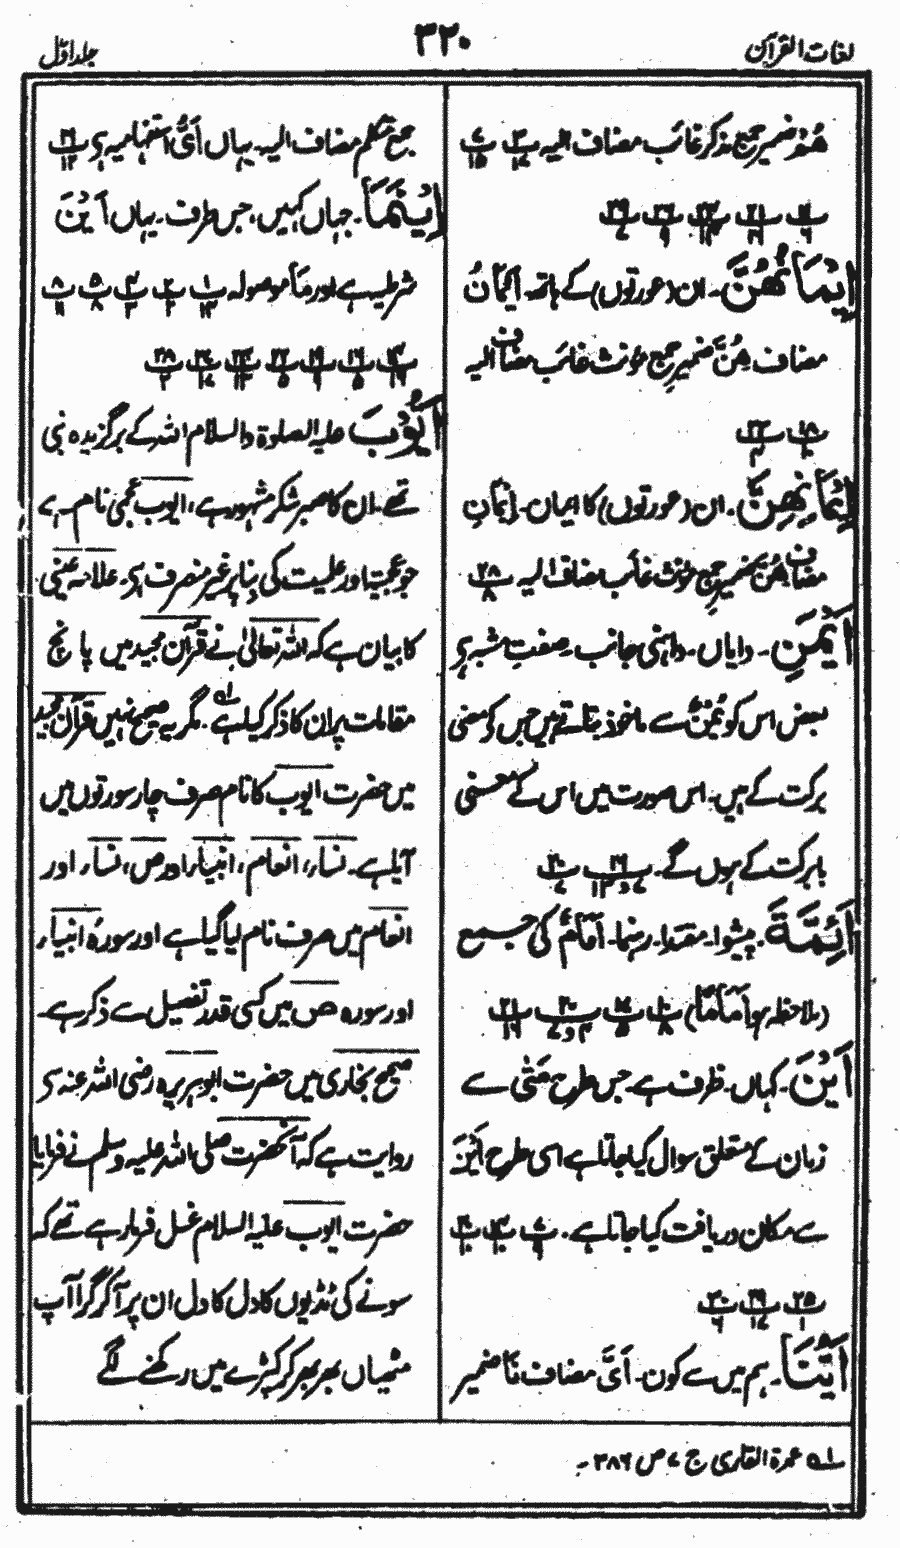 لغات القرآن
۳۲۰
جلد اوّل
هُمْ ضمیر جمع مذکر غائب مضاف الیہ
اَيْمَانُهُنَّ۔ ان (عورتوں) کے ہاتھ۔ اَيْمَانُ
مضاف هُنَّ ضمیر جمع مؤنث غائب مضاف الیہ
اِيْمَانِهِنَّ۔ ان (عورتوں) کا ایمان۔ اِيْمَانِ
مضاف هُنَّ ضمیر جمع مؤنث غائب مضاف الیہ
اَيْمَنِ۔ دایاں۔ داہنی جانب۔ صفت مشبہ ہے
بعض اس کو يُمْنٌ سے ماخوذ بتاتے ہیں جس کو معنی
برکت کے ہیں۔ اس صورت میں اس کے معنی
بابرکت کے ہوں گے۔
اَئِمَّةَ۔ پیشوا۔ مقتدا۔ رہنما۔ اِمَامٌ کی جمع
(ملاحظہ ہو اِمَامًا)
اَيْنَ۔ کہاں۔ ظرف ہے۔ جس طرح مَتٰی سے
زمان کے متعلق سوال کیا جاتا ہے اسی طرح اَيْنَ
سے مکان دریافت کیا جاتا ہے۔
اَيُّنَا۔ ہم میں سے کون۔ اَیُّ مضاف نَا ضمیر
جمع متکلم مضاف الیہ۔ یہاں اَیُّ استفہامیہ ہے
اَيْنَمَا۔ جہاں کہیں، جس طرف۔ یہاں اَيْنَ
شرطیہ ہے اور مَا موصولہ
اَيُّوْبَ علیہ الصلوۃ والسلام اللہ کے برگزیدہ نبی
تھے۔ ان کا صبر و شکر مشہور ہے، ایوب عجمی نام ہے۔
جو عجمیت اور علمیت کی بنا پر غیر منصرف ہے۔ علامہ عینی
کا بیان ہے کہ اللہ تعالیٰ نے قرآن مجید میں پانچ
مقامات پر ان کا ذکر کیا ہے لہ۔ مگر یہ صحیح نہیں قرآن مجید
میں حضرت ایوب کا نام صرف چار سورتوں میں
آیا ہے۔ نساء، انعام، انبیاء اور ص، نساء، اور
انعام میں صرف نام لیا گیا ہے اور سورۂ انبیاء،
اور سورہ ص میں کسی قدر تفصیل سے ذکر ہے۔
صحیح بخاری میں حضرت ابو ہریرہ رضی اللہ عنہ سے
روایت ہے کہ آنحضرت صلی اللہ علیہ وسلم نے فرمایا
حضرت ایوب علیہ السلام غسل فرما رہے تھے کہ
سونے کی ٹڈیوں کا دل کا دل ان پر آ کر گرا آپ
مٹھیاں بھر بھر کر کپڑے میں رکھنے لگے
لہ عمدۃ القاری ج ۷ ص ۳۸۶ ۔